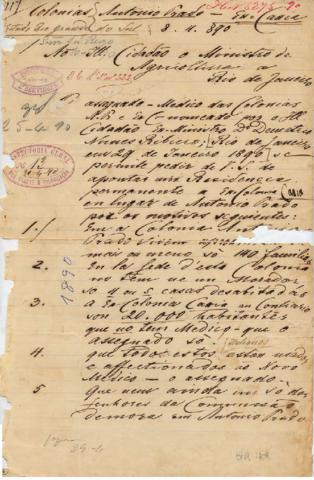 Colonias Antonio Prado — Ex Caxie
Estado Rio grande do Sul
8. 4. 890
Ao Ill. Cidadão o Ministro de
Agricultura a
Rio de Janeiro
25-4-90
assignado - Medico das Colonias
A.P. e do Comonçado por o Ill.
Cidadão Ministro Dr Demetrio
Nunes Ribeira, Rio de Janeiro
em 29 de Janeiro 1890 se
permitte pedir de
apontar sua Residencia
permanente a Ex Colonia Caxia
en lugar de Antonio Prado
por os motivos seguientes:
1./ Em a Colonia Antonio
Prado vivem
mais ou meno só 140 familias
2. En la sede d'esta Colonia
no tem ne un Morador,
so 4 ou 5 casas desabitadas
3. a Ex Colonia Caxia au Contrario
son 20.000 habitantes
que no tem Medico - que o
assegnado so
4. que todos estos estan
e affectionados ao Novo
Medico - o assegnado -
5 Que neus ainda un só dos
senhores da Commissão
demora em Antonio Prado
1890